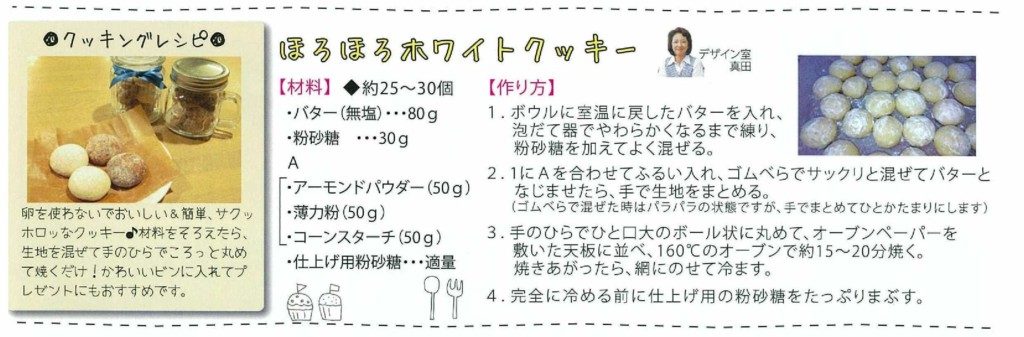 クッキングレシピ
卵を使わないでおいしい&簡単、サクッ
ホロッなクッキー♪材料をそろえたら、
生地を混ぜて手のひらでころっと丸め
て焼くだけ!かわいいビンに入れてプ
レゼントにもおすすめです。
ほろほろホワイトクッキー
デザイン室
真田
【材料】 ◆約25〜30個
・バター(無塩)・・・80g
・粉砂糖 ・・・30g
A
・アーモンドパウダー(50g)
・薄力粉(50g)
・コーンスターチ(50g)
・仕上げ用粉砂糖・・・適量
【作り方】
1.ボウルに室温に戻したバターを入れ、
泡だて器でやわらかくなるまで練り、
粉砂糖を加えてよく混ぜる。
2.1にAを合わせてふるい入れ、ゴムべらでサックリと混ぜてバターと
なじませたら、手で生地をまとめる。
(ゴムべらで混ぜた時はパラパラの状態ですが、手でまとめてひとかたまりにします)
3.手のひらでひと口大のボール状に丸めて、オーブンペーパーを
敷いた天板に並べ、160℃のオーブンで約15〜20分焼く。
焼きあがったら、網にのせて冷ます。
4.完全に冷める前に仕上げ用の粉砂糖をたっぷりまぶす。